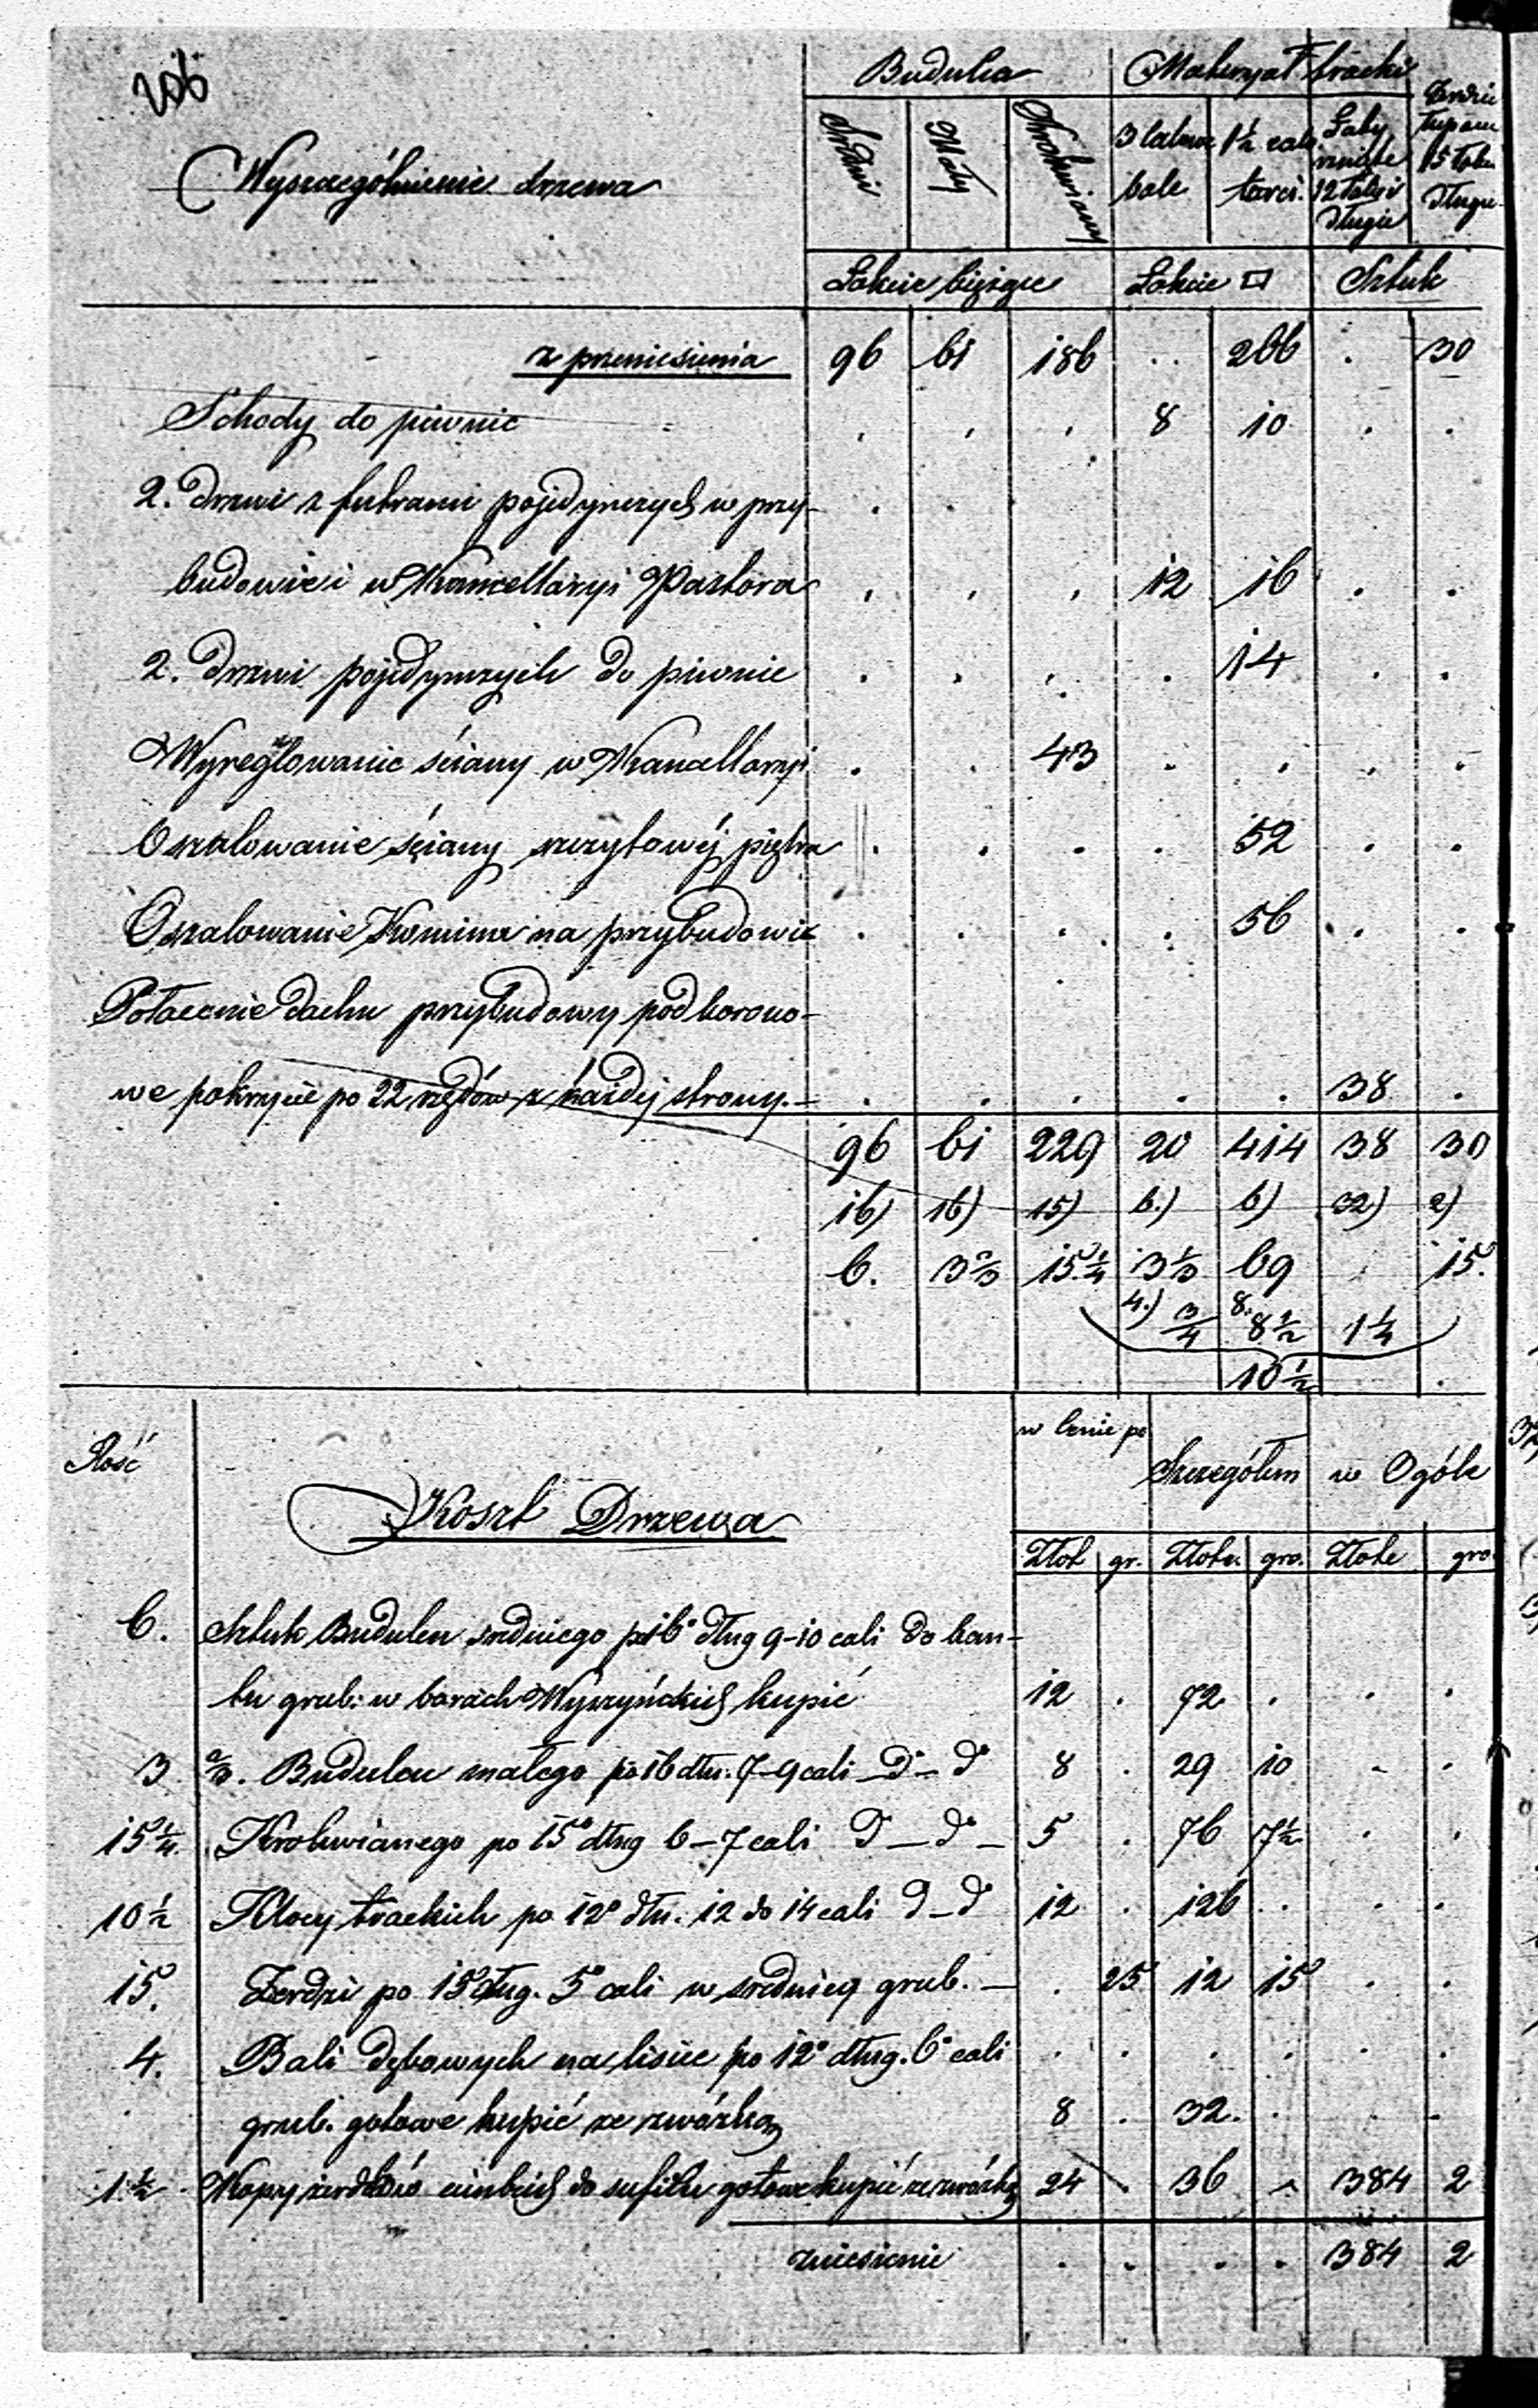 206
Budulca Materyał tracki
Wyszczególnienie drzewa
Średni Mały Krokwiany 3 calowe bale 1½ cal. tarci. Łaty rznięte 12 łokci długie Żerdzie łupane 15 łokci długie
Łokcie bieżące Łokcie □ Sztuk
z przeniesienia 96 61 186 . . 266 . 30
Schody do piwnic . . . 8 10 . .
2. Drzwi z futrami pojedynczych w przy-
budowie i w Kancellaryi Pastora . . . 12 16 . .
2. Drzwi pojedynczych do piwnic . . . . 14 . .
Wyreglowanie ściany w Kancellaryi . . 43 . . . .
Oszalowanie ściany szczytowéj piętra . . . . 52 . .
Oszalowanie Komina na przybudowie . . . . 56 . .
Połacenie dachu przybudowy pod korono-
we pokrycie po 22 rzędów z każdej strony.— . . . . . 38 .
96 61 229 20 414 38 30
16) 16) 15) 6.) 6) 32) 2)
6. 3⅔ 15¼ 3⅓ 69 15.
4.) ¾ 8. 8½ 1¼
10½
Ilość w cenie po Szczególem w Ogóle
Koszt Drzewa
Złot gr. Złote. gro. Złote gro
6. Sztuk Budulcu średniego po 16° dług 9-10 cali do kan-
tu grub: w borach Wyszyńskich kupić 12 . 72 . . .
3 ⅔. Budulcu małego po 16 dłu. 7-9 cali _ D° _ d° 8 . 29 10 . .
15¼ Krokwianego po 15° dług 6-7 cali D _ d° _ 5 . 76 7½ . .
10½ Klocy trackich po 12° dłu. 12 do 14 cali D _ d° 12 . 126 . . .
15. Żerdzi po 15° dług. 5° cali w średnicy grub. — . 25 12 15 . .
4. Bali dębowych na lisice po 12° dług. 6° cali . . . . . .
grub. gotowe kupić ze zwózką 8 . 32. . . .
1½ Kopy żerdków cienkich do sufitu gotowe kupić ze zwózką 24 . 36 . 384 2
zniesienie . . . . 384 2